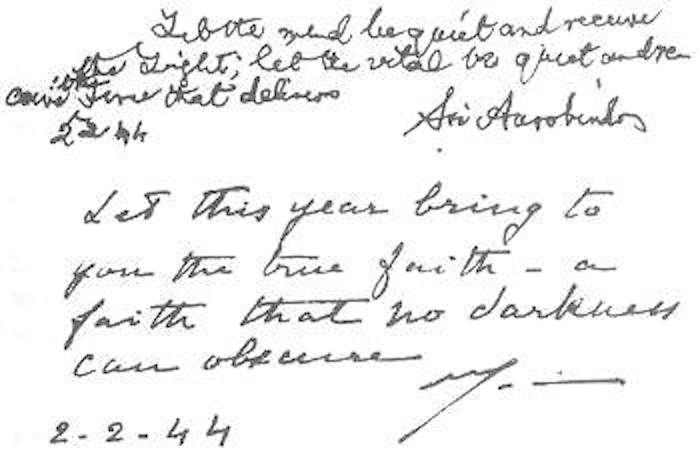 Let the mind be quiet and receive
the Light, let the vital be quiet and re
ceive the Force that delivers
2 2 44
Sri Aurobindo
Let this year bring to
you the true faith - a
faith that no darkness
can obscure
2-2-44